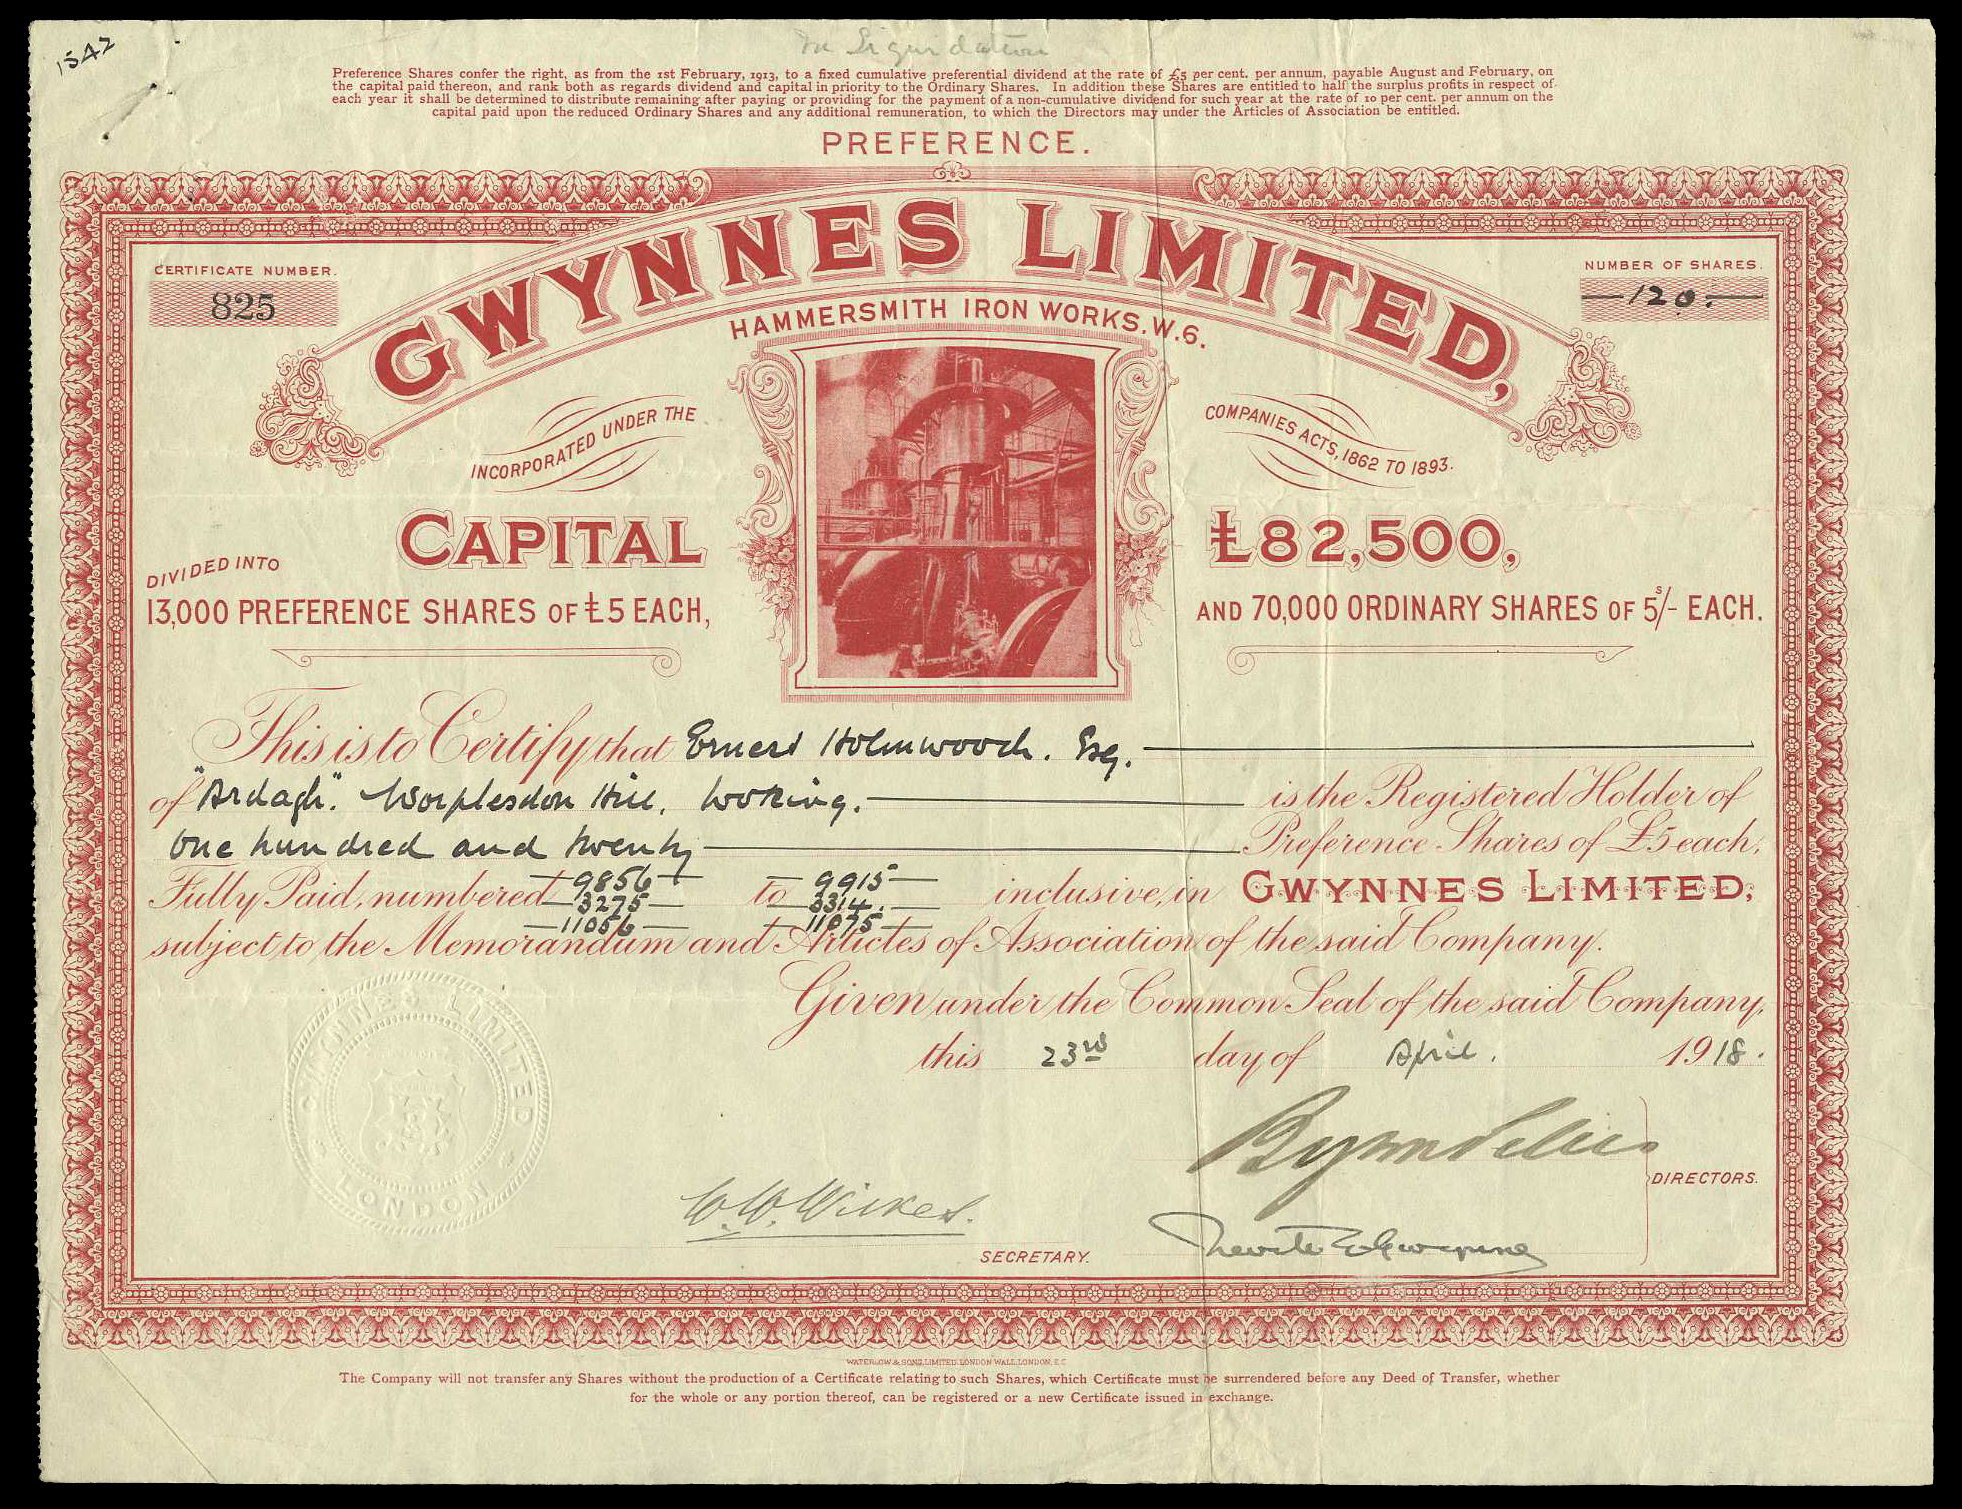 1542
In Liquidation
Preference Shares confer the right, as from the 1st February, 1913, to a fixed cumulative preferential dividend at the rate of £5 per cent. per annum, payable August and February, on
the capital paid thereon, and rank both as regards dividend and capital in priority to the Ordinary Shares. In addition these Shares are entitled to half the surplus profits in respect of
each year it shall be determined to distribute remaining after paying or providing for the payment of a non-cumulative dividend for such year at the rate of 10 per cent. per annum on the
capital paid upon the reduced Ordinary Shares and any additional remuneration, to which the Directors may under the Articles of Association be entitled.
PREFERENCE.
GWYNNES LIMITED,
HAMMERSMITH IRON WORKS. W.6.
CERTIFICATE NUMBER.
825
NUMBER OF SHARES.
120.
INCORPORATED UNDER THE COMPANIES ACTS, 1862 TO 1893.
CAPITAL £82,500,
DIVIDED INTO
13,000 PREFERENCE SHARES OF £5 EACH, AND 70,000 ORDINARY SHARES OF 5s/- EACH.
This is to Certify that Ernest Holmwood. Esq.
of "Ardagh". Worplesdon Hill, Woking. is the Registered Holder of
One hundred and twenty Preference Shares of £5 each,
Fully Paid, numbered 9856 to 9915 inclusive, in GWYNNES LIMITED,
3275 3314
11056 11075
subject to the Memorandum and Articles of Association of the said Company.
Given under the Common Seal of the said Company,
this 23rd day of April. 1918.
GWYNNES LIMITED
LONDON
DIRECTORS.
W. W. Wilkes.
Neville Gwynne
SECRETARY.
WATERLOW & SONS LIMITED, LONDON WALL, LONDON, E.C.
The Company will not transfer any Shares without the production of a Certificate relating to such Shares, which Certificate must be surrendered before any Deed of Transfer, whether
for the whole or any portion thereof, can be registered or a new Certificate issued in exchange.